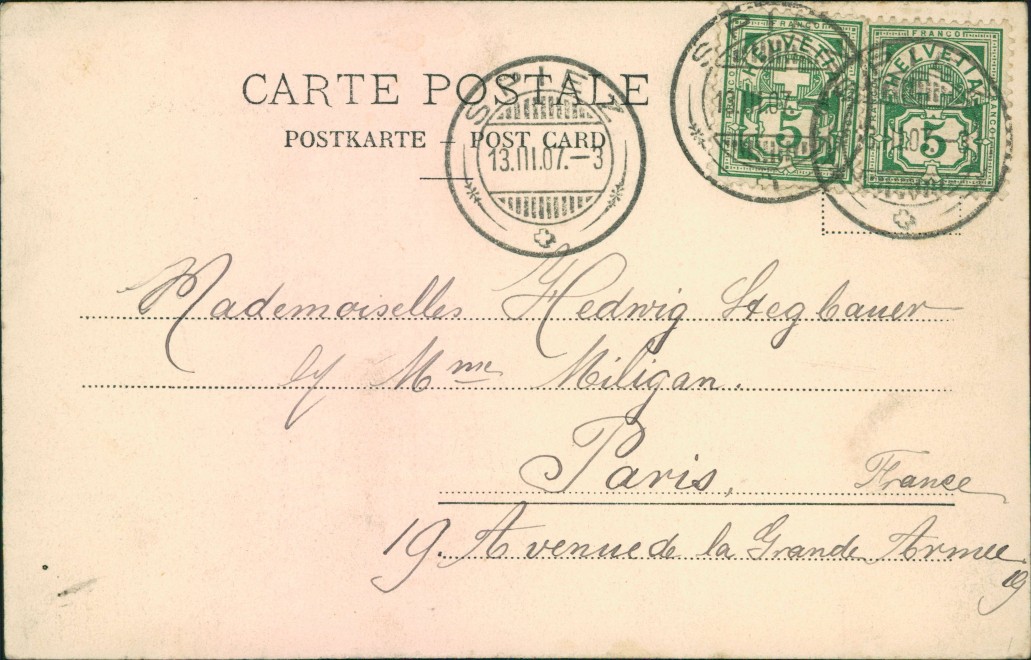 CARTE POSTALE
POSTKARTE – POST CARD
13.III.07.–3
FRANCO HELVETIA FRANCO 5
FRANCO HELVETIA FRANCO 5
Mademoiselles Hedwig Stegbauer
Mme Miligan.
Paris, France
19. Avenue de la Grande Armee
19